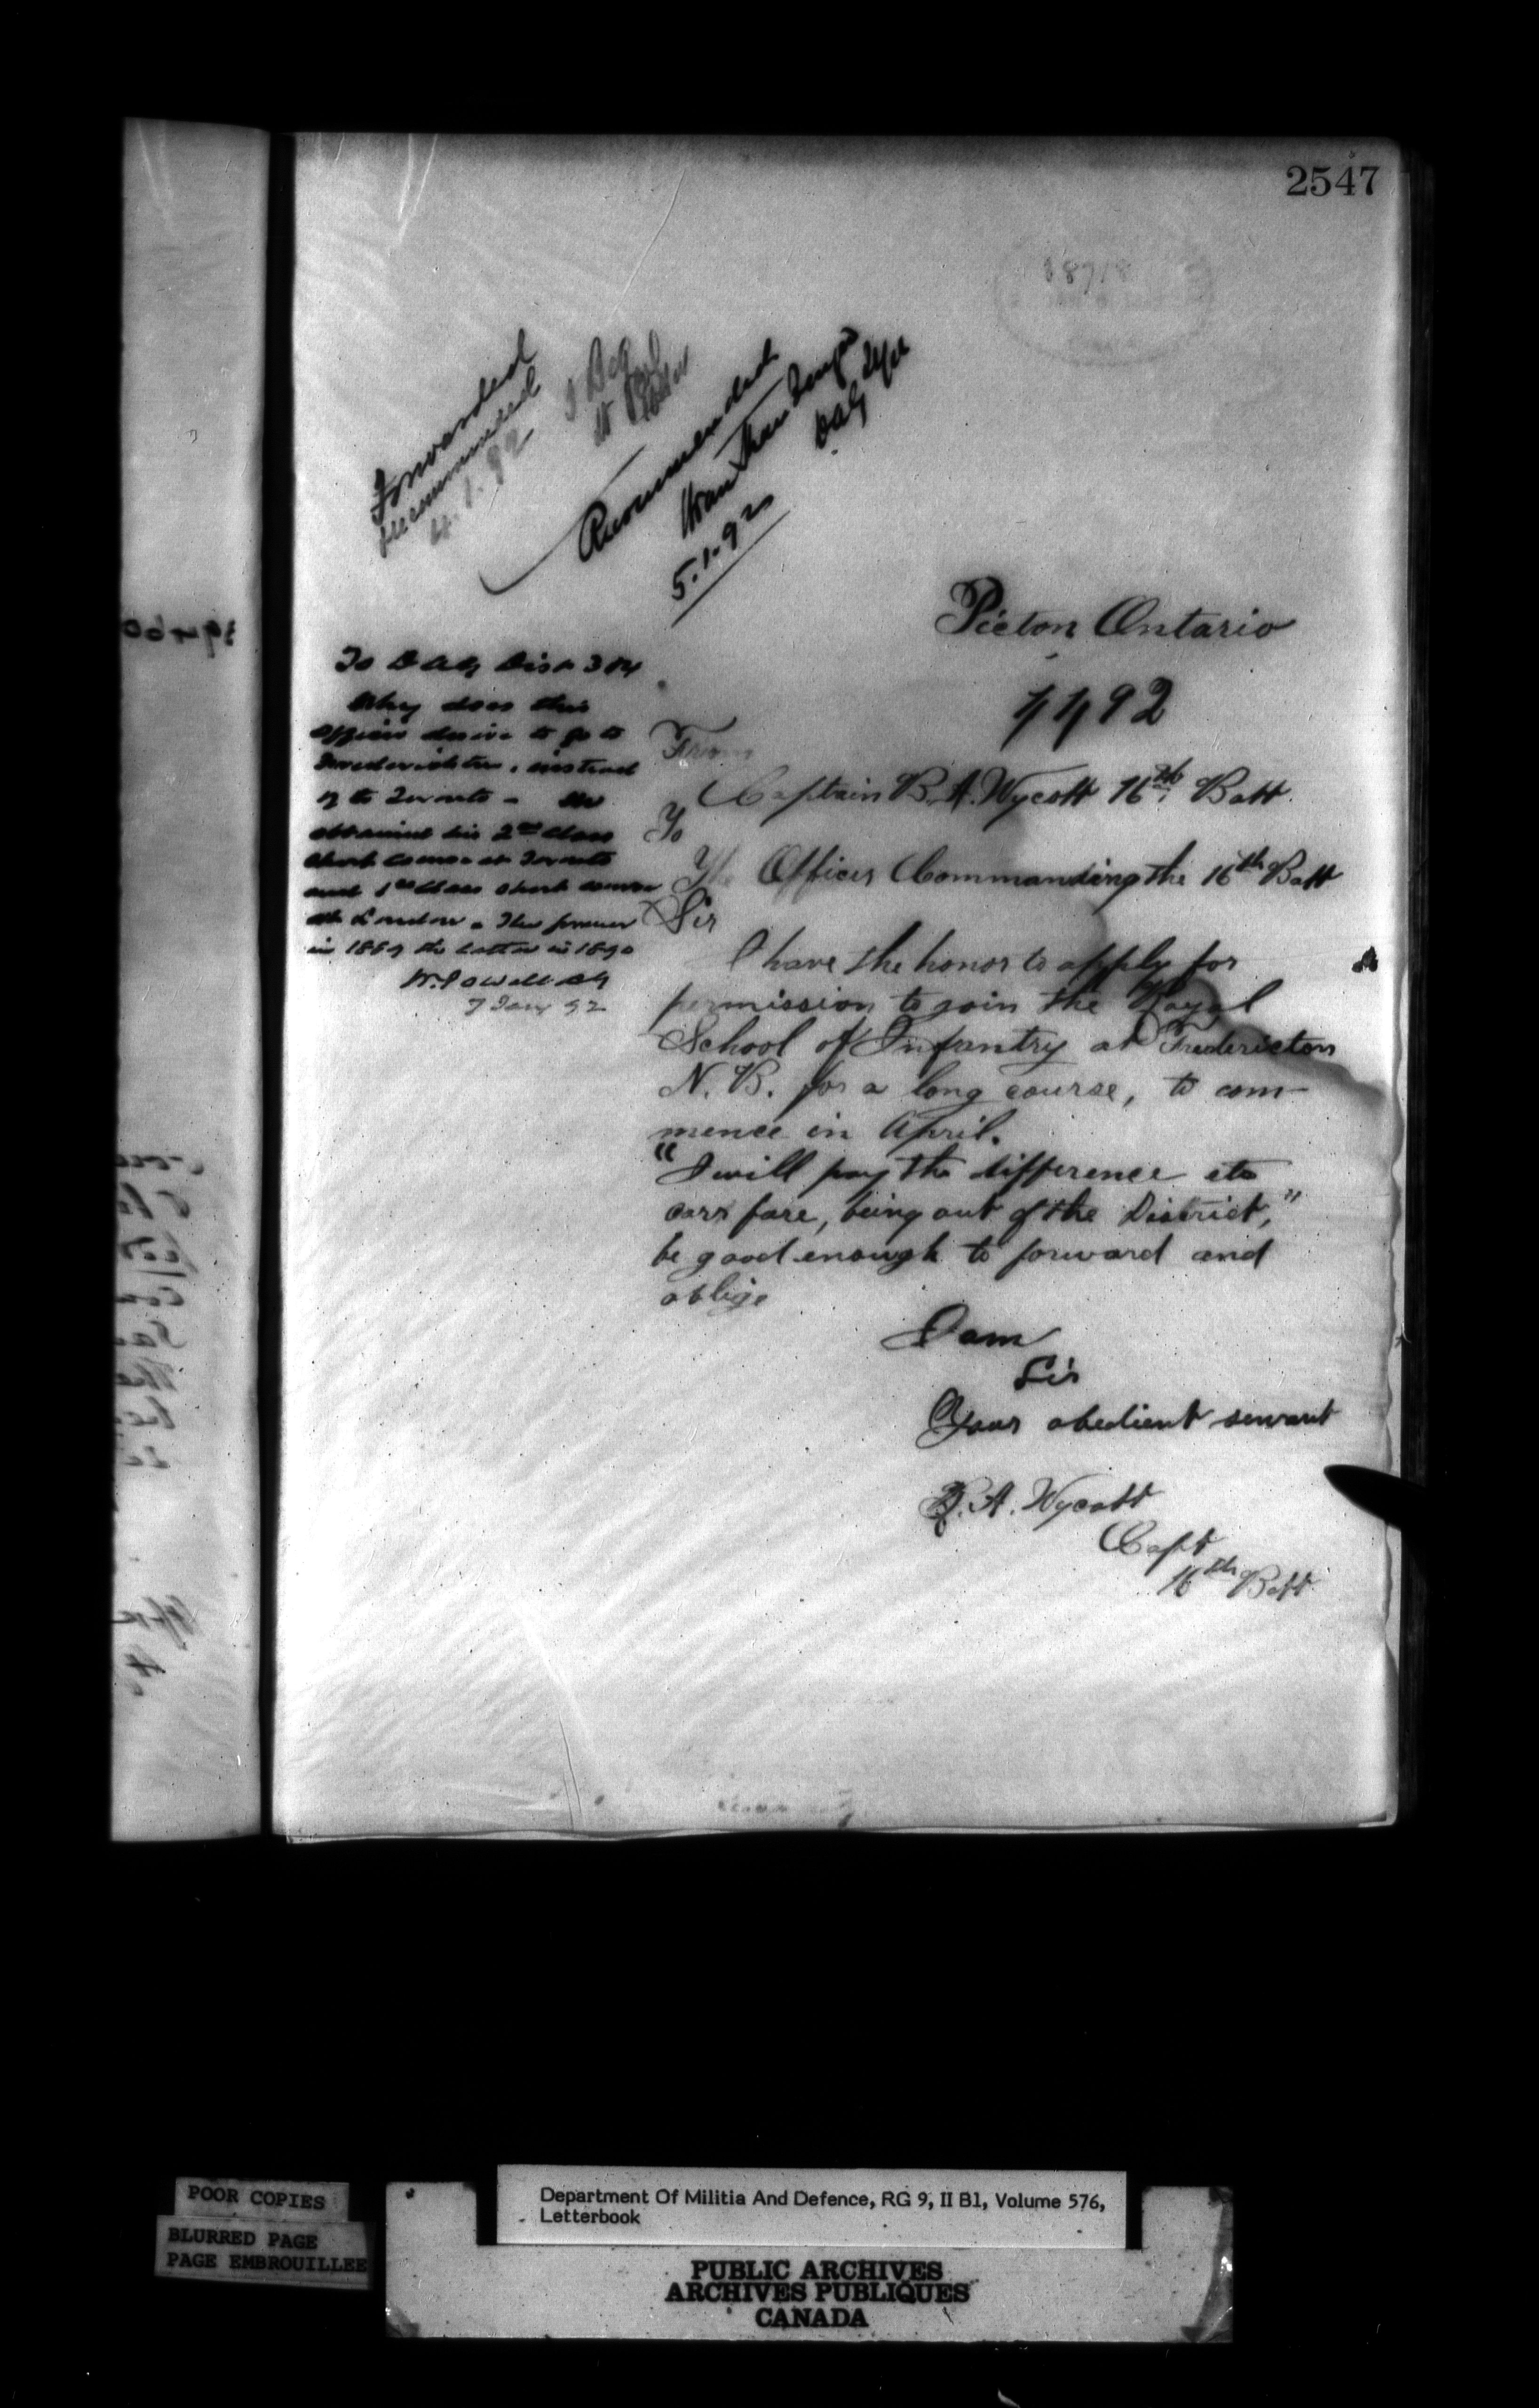 2547
18718
Forwarded
recommended
4.1.92
Recommended
5.1.92
DAG
Picton Ontario
4/1/92
To DAG Dist 3 & 4
Why does this
officer desire to go to
Fredericton, instead
of to Toronto - He
obtained his 2nd class
short course at Toronto
and 1st class short course
at London. The former
in 1889 the latter in 1890
W. Powell AG
7 Jan 92
From
Captain B. A. Wycott 16th Batt.
To
The Officer Commanding the 16th Batt
Sir
I have the honor to apply for
permission to join the Royal
School of Infantry at Fredericton
N. B. for a long course, to com-
mence in April.
"I will pay the difference etc
cars fare, being out of the District,"
be good enough to forward and
oblige
I am
Sir
Your obedient servant
B. A. Wycott
Capt
16th Batt
POOR COPIES
BLURRED PAGE
PAGE EMBROUILLEE
Department Of Militia And Defence, RG 9, II B1, Volume 576,
Letterbook
PUBLIC ARCHIVES
ARCHIVES PUBLIQUES
CANADA